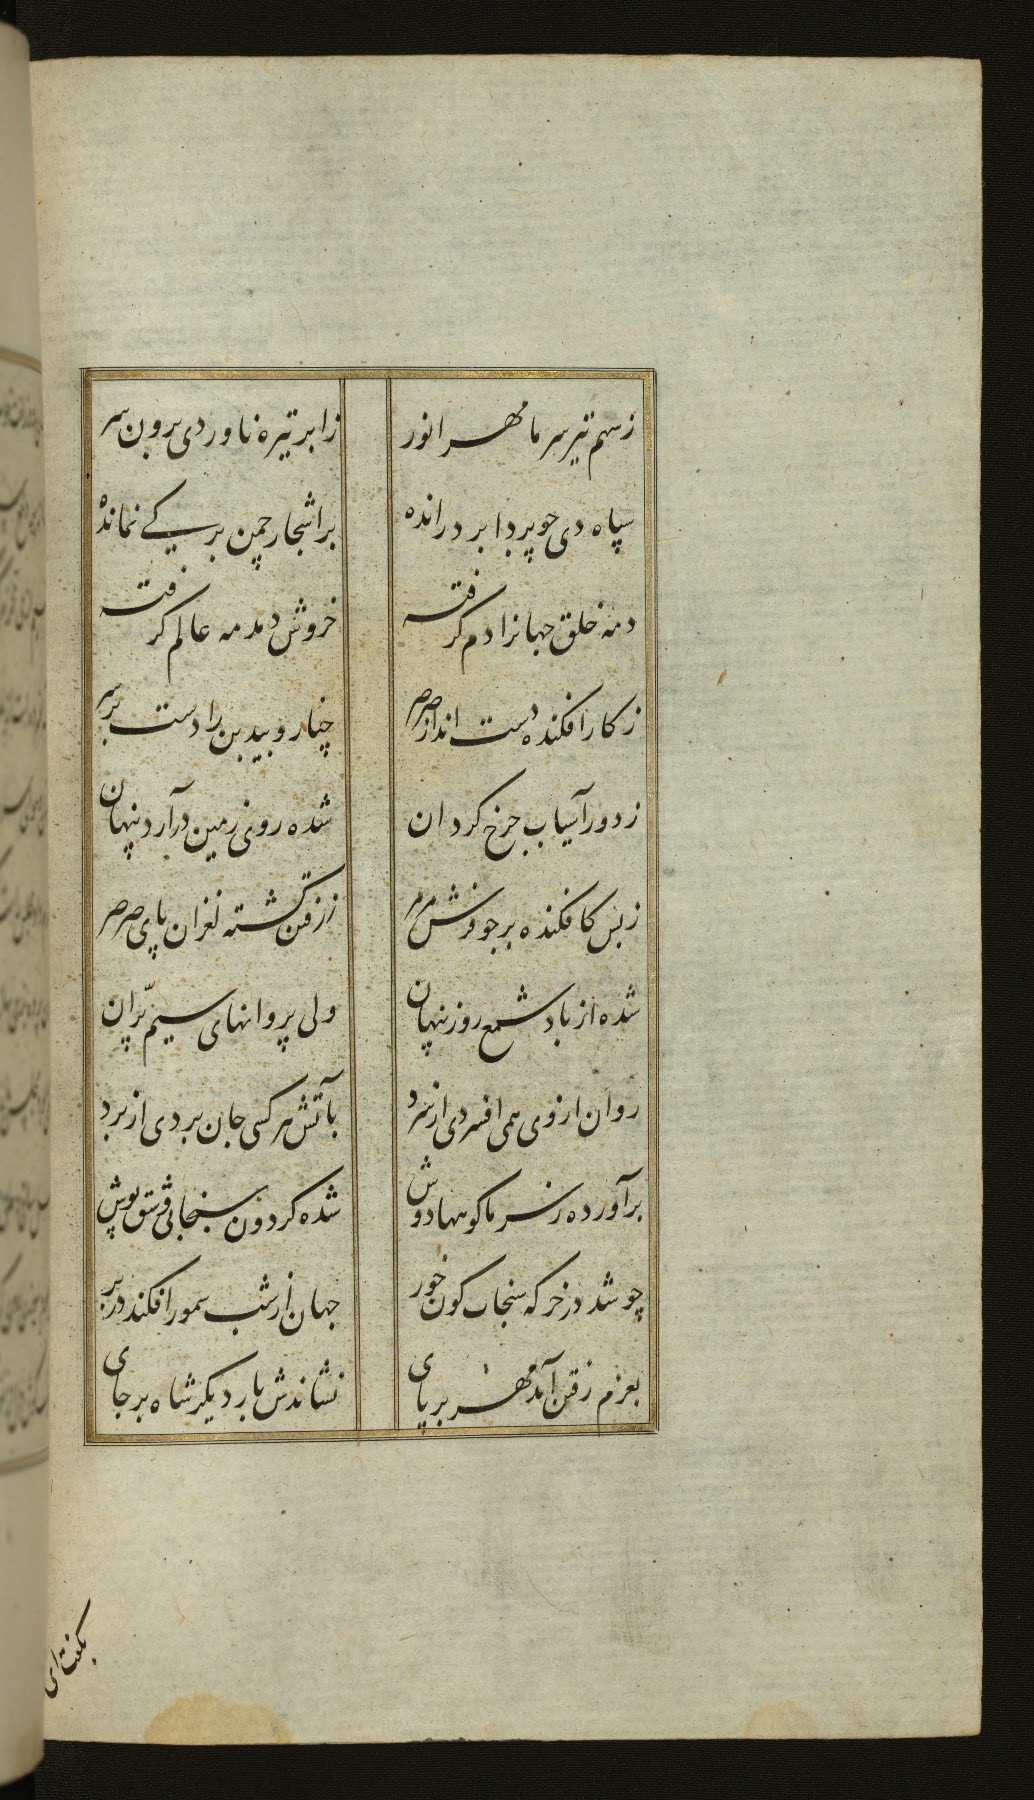 ز سهم تیر سرما مهر انور ز ابر تیره ناوردی برون سر
سپاه دی چو پر د ابر در انده بر اشجار چمن برکی نمانده
دمه خلق جهانرا دم کرفته خروش دمدمه عالم کرفته
ز کار افکنده دست انداز صرصر چنار و بیدبن را دست بر سر
ز دور آسیاب چرخ کردان شده روی زمین در آرد پنهان
ز بس کافکنده بر جو فرش مرمر ز رفتن کشته لغزان پای صرصر
شده از باد شمع روز پنهان ولی پروانهای سیم پرّان
روان از وی همی افسردی از سرد بآتش هر کسی جان بردی از برد
برآورده ز سرما کوهها دوش شده کردون سنجابی فستق پوش
چو شد در خرکه سنجاب کون خور جهان از شب سمور افکند در بر
بعزم رفتن آمد مهر بر پای نشاندش بار دیکر شاه بر جای
بکفت ای